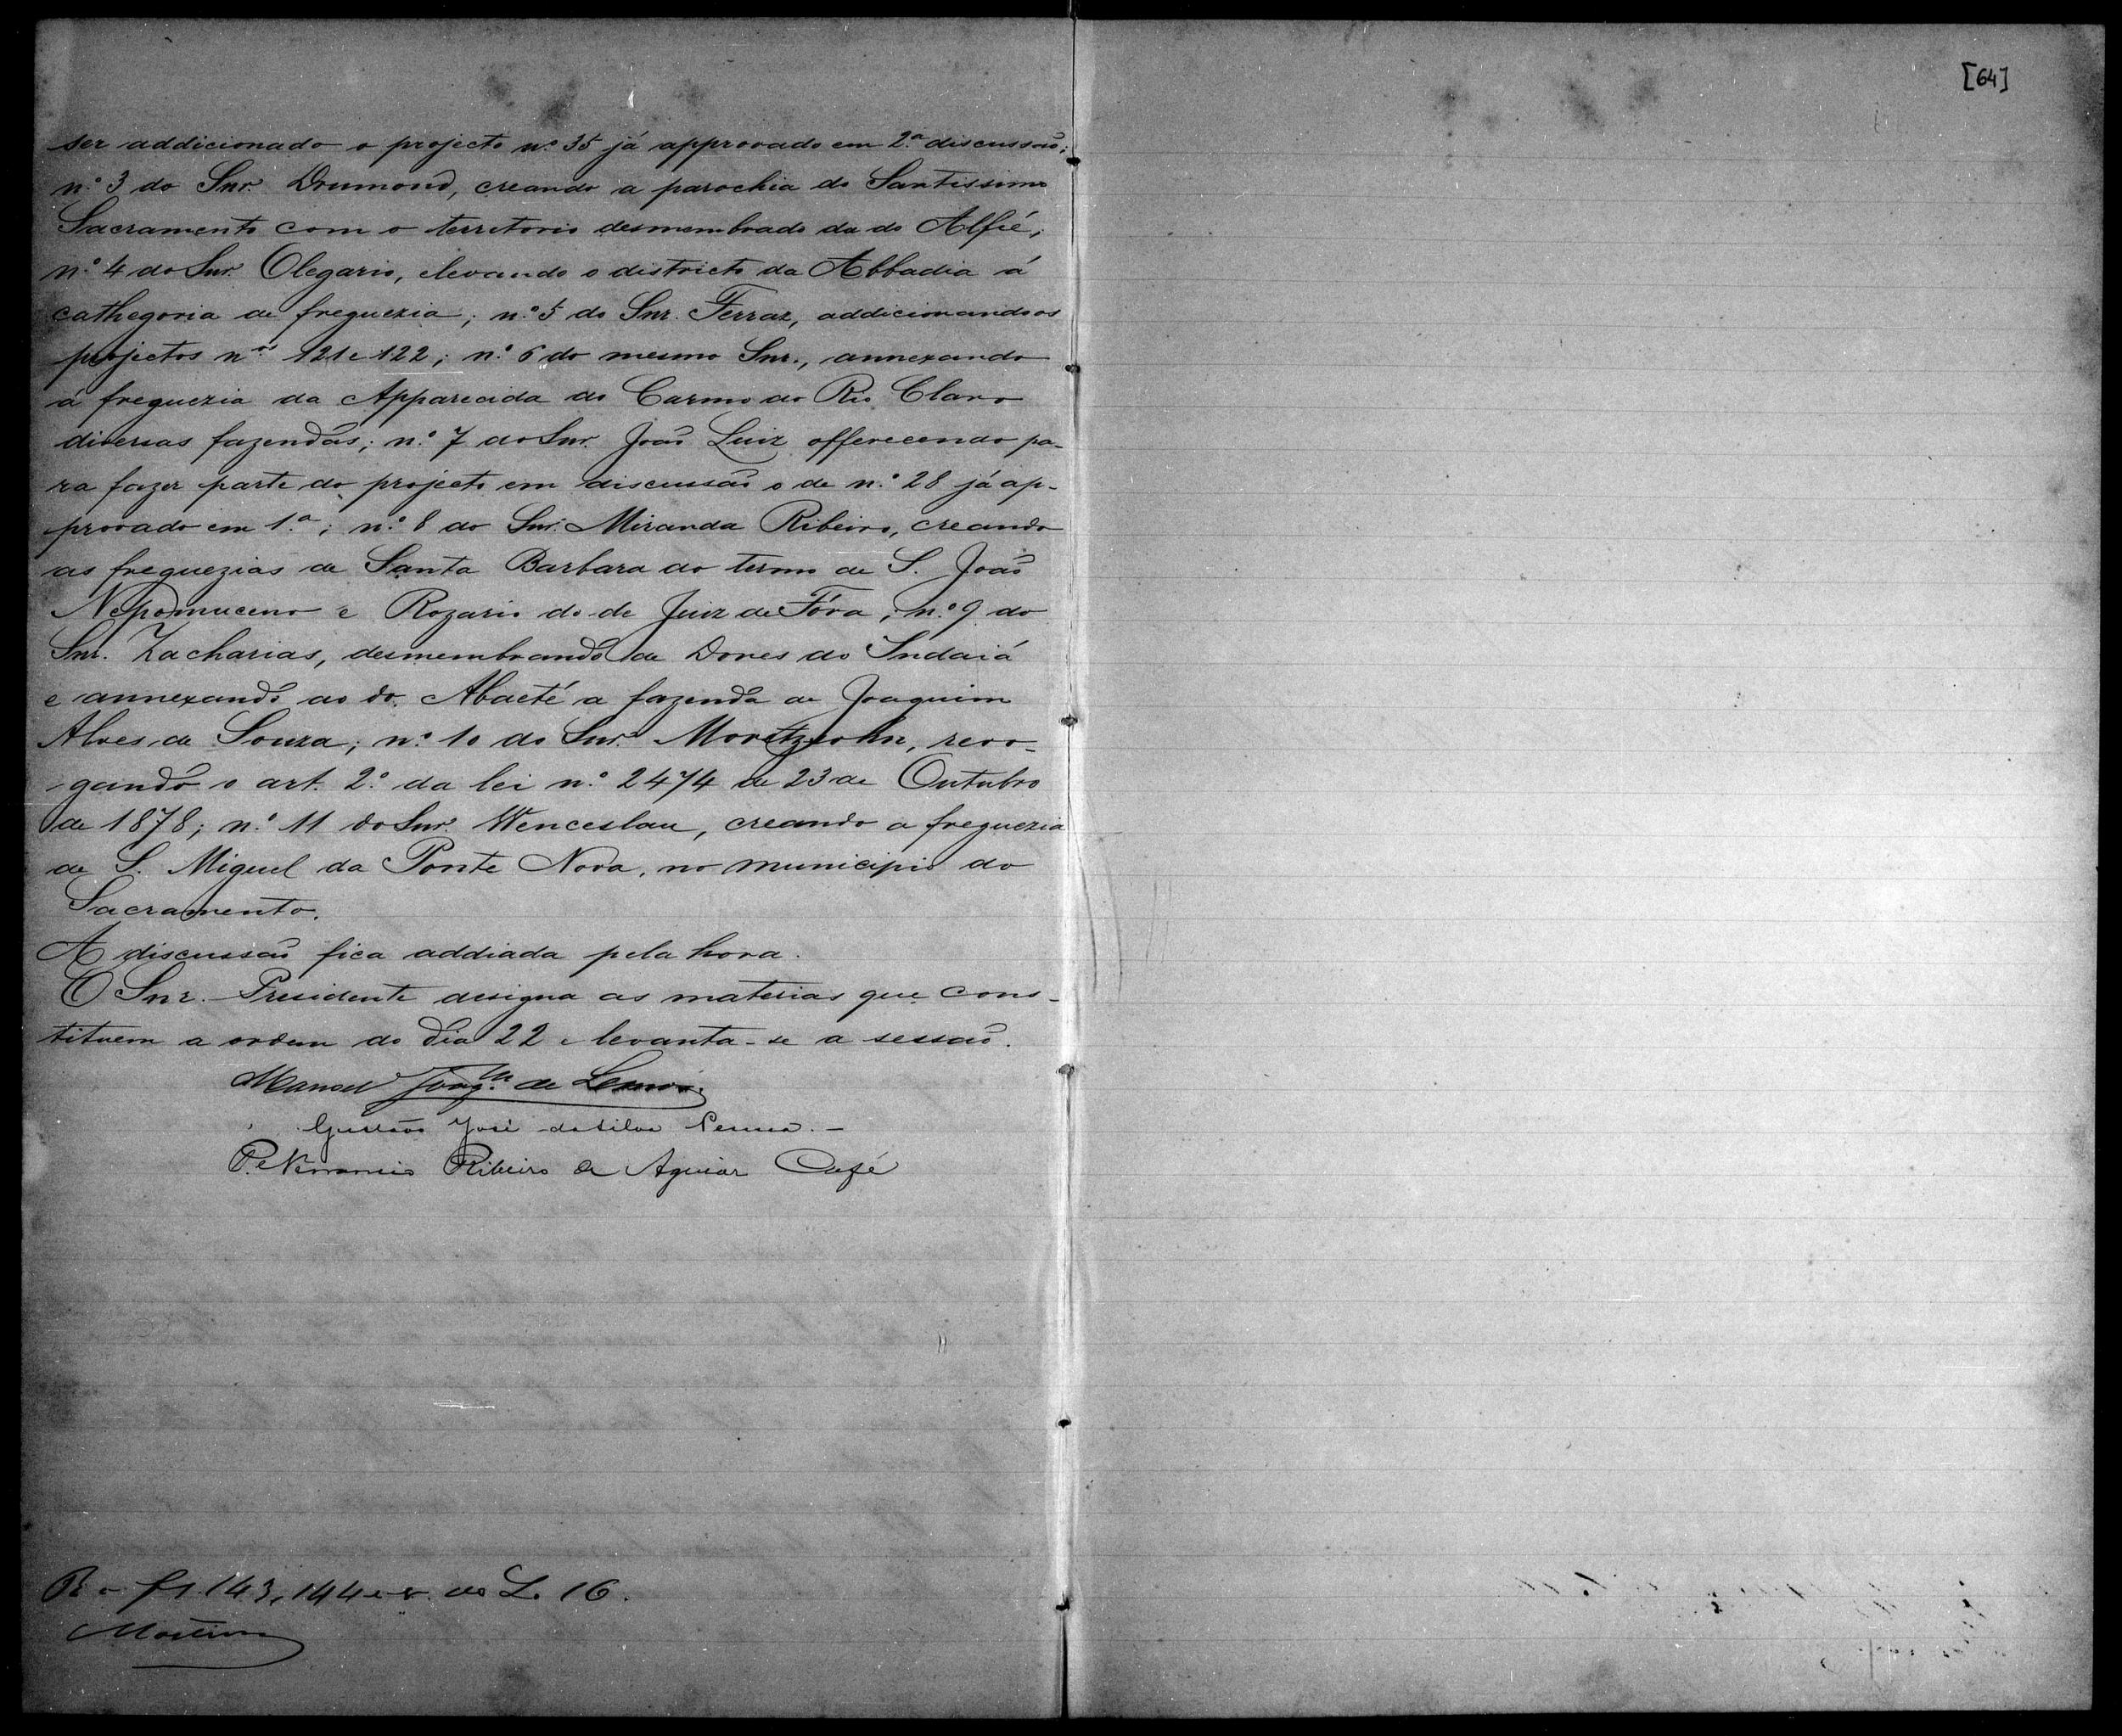 [64]
ser addicionado o projecto n.º 35 já approvado em 2.ª discussão;
n.º 3 do Snr. Drumond, creando a parochia do Santissimo
Sacramento com o territorio desmembrado da do Alfié;
n.º 4 do Snr. Olegario, elevando o districto da Abbadia á
cathegoria de freguezia; n.º 5 do Snr. Ferraz, addicionando os
projectos n.os 121 e 122; n.º 6 do mesmo Snr., annexando
á freguezia da Apparecida do Carmo do Rio Claro
diversas fazendas; n.º 7 do Snr. João Luiz offerecendo pa-
ra fazer parte do projecto em discussão o de n.º 28 já ap-
provado em 1.ª; n.º 8 do Snr. Miranda Ribeiro, creando
as freguezias de Santa Barbara do termo de S. João
Nepomuceno e Rozario do de Juiz de Fóra; n.º 9 do
Snr. Zacharias, desmembrando de Dores do Indaiá
e annexando ao do Abaeté a fazenda de Joaquim
Alves de Souza; n.º 10 do Snr. Moretzsohn, revo-
gando o art. 2.º da lei n.º 2474 de 23 de Outubro
de 1878; n.º 11 do Snr. Wenceslau, creando a freguezia
de S. Miguel da Ponte Nova, no municipio do
Sacramento.
A discussão fica addiada pela hora.
O Snr. Presidente designa as materias que cons-
tituem a ordem do dia 22 e levanta-se a sessão.
Manoel Joaq.m de Lemos
Gustavo José da Silva Penna. -
P.e Ribeiro de Aguiar Café
R a fs 143, 144 e v. do L. 16.
Martins